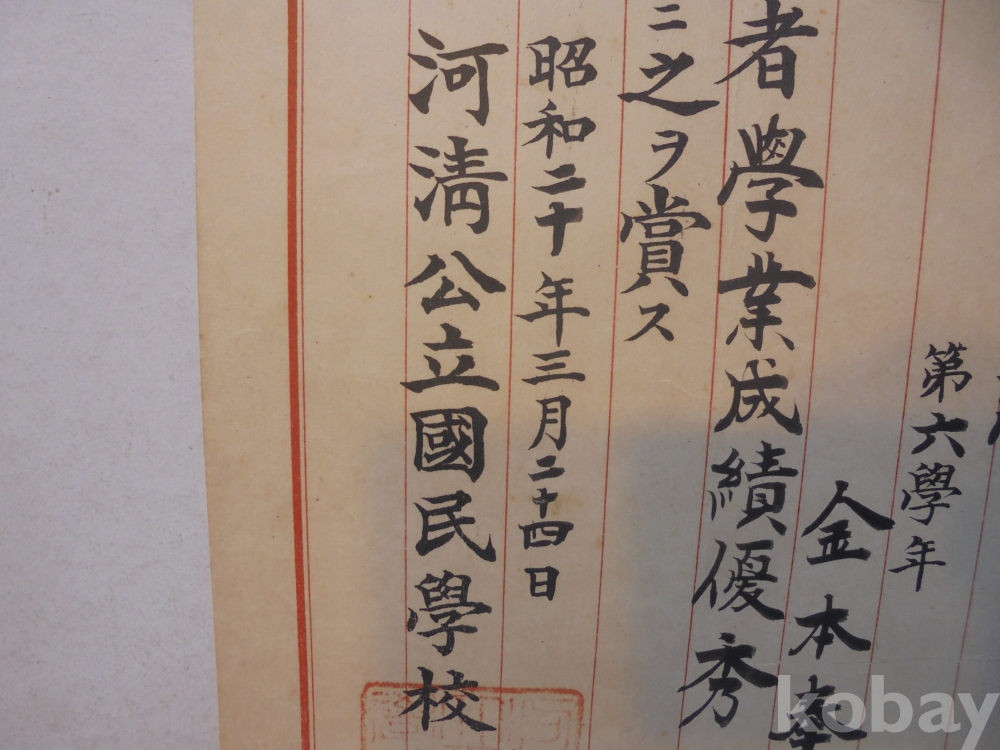 第六學年
金本
者學業成績優秀
ニ之ヲ賞ス
昭和二十年三月二十四日
河淸公立國民學校
kobay